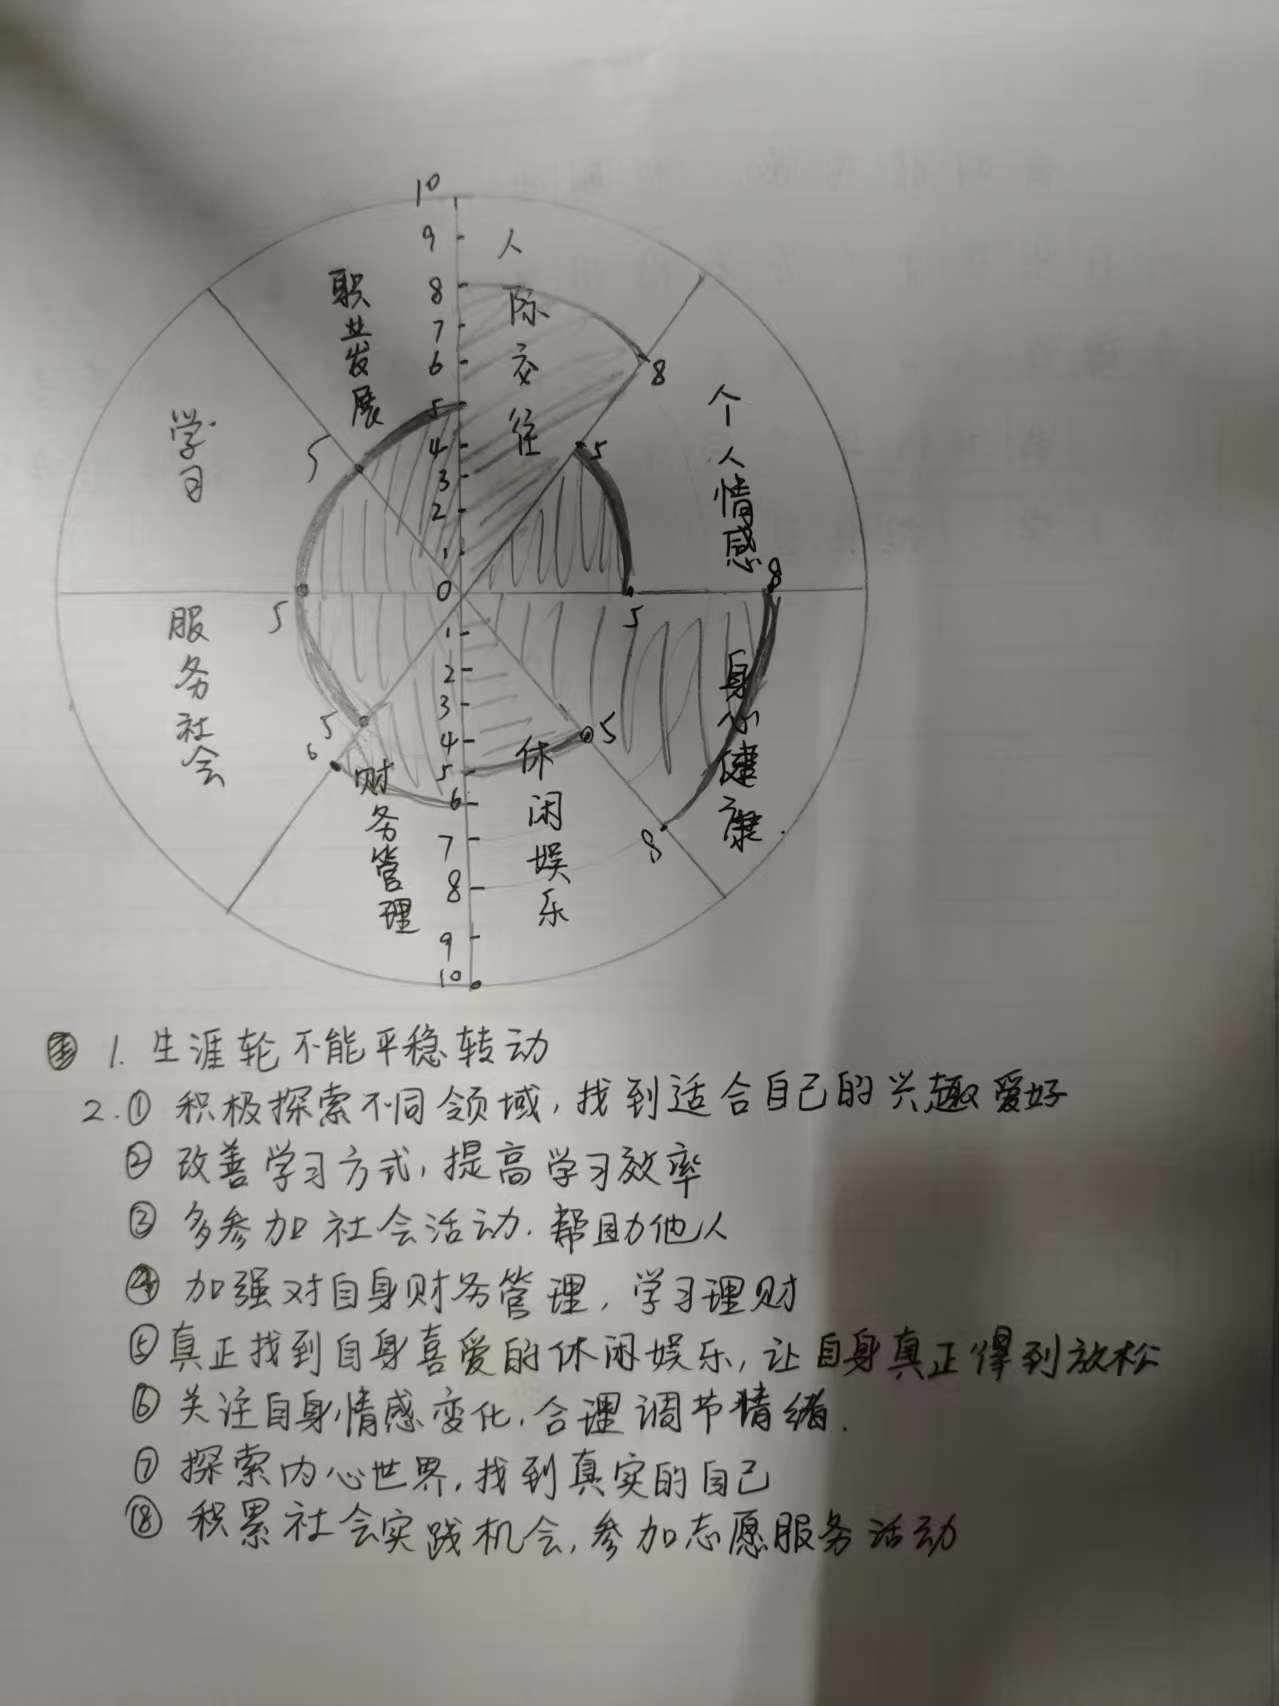 10
9
8
7
6
5
4
3
2
1
0
1
2
3
4
5
6
7
8
9
10
人际交往
8
个人情感
5
5
8
身心健康
8
5
休闲娱乐
财务管理
6
5
服务社会
5
学习
5
职业发展
1. 生涯轮不能平稳转动
2. ① 积极探索不同领域,找到适合自己的兴趣爱好
② 改善学习方式,提高学习效率
③ 多参加社会活动.帮助他人
④ 加强对自身财务管理,学习理财
⑤ 真正找到自身喜爱的休闲娱乐,让自身真正得到放松
⑥ 关注自身情感变化,合理调节情绪.
⑦ 探索内心世界,找到真实的自己
⑧ 积累社会实践机会,参加志愿服务活动